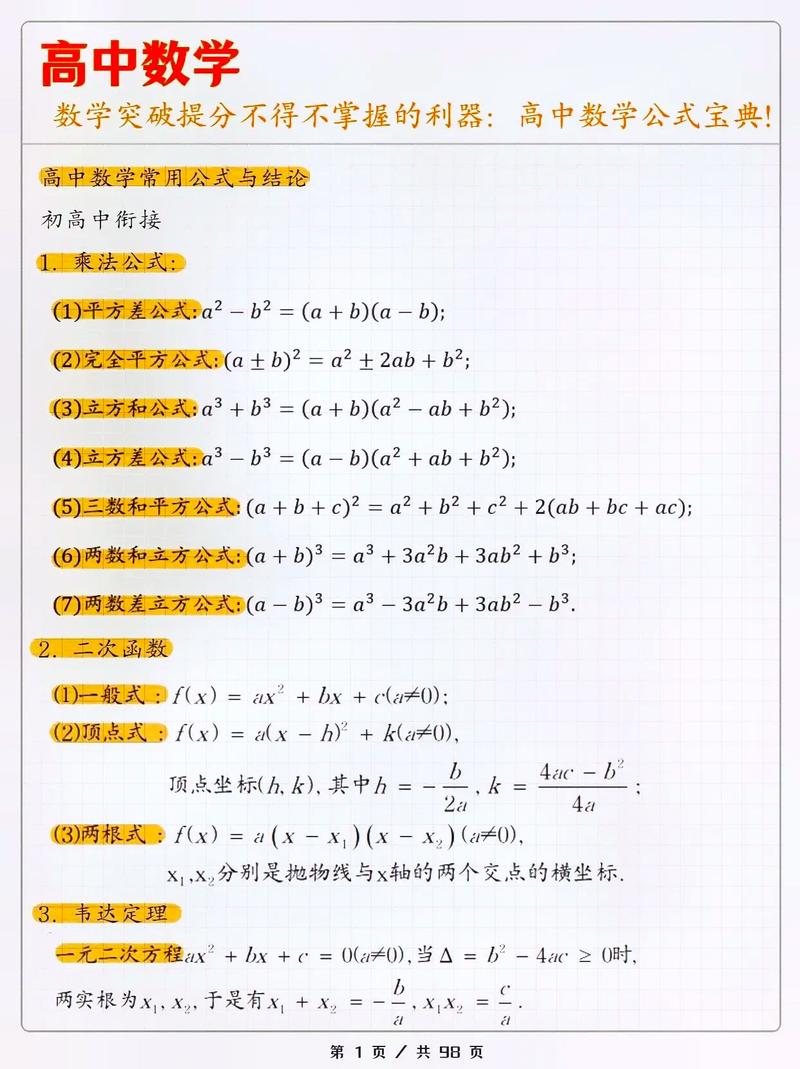 高中数学
数学突破提分不得不掌握的利器：高中数学公式宝典!
高中数学常用公式与结论
初高中衔接
1. 乘法公式:
(1)平方差公式:a² − b² = (a + b)(a − b);
(2)完全平方公式:(a ± b)² = a² ± 2ab + b²;
(3)立方和公式:a³ + b³ = (a + b)(a² − ab + b²);
(4)立方差公式:a³ − b³ = (a − b)(a² + ab + b²);
(5)三数和平方公式:(a + b + c)² = a² + b² + c² + 2(ab + bc + ac);
(6)两数和立方公式:(a + b)³ = a³ + 3a²b + 3ab² + b³;
(7)两数差立方公式:(a − b)³ = a³ − 3a²b + 3ab² − b³.
2. 二次函数
(1)一般式：f(x) = ax² + bx + c(a≠0);
(2)顶点式：f(x) = a(x − h)² + k(a≠0),
顶点坐标(h, k), 其中h = −b/2a, k = (4ac − b²)/4a;
(3)两根式：f(x) = a(x − x₁)(x − x₂)(a≠0),
x₁,x₂分别是抛物线与x轴的两个交点的横坐标.
3. 韦达定理
一元二次方程ax² + bx + c = 0(a≠0),当Δ = b² − 4ac ≥ 0时,
两实根为x₁, x₂, 于是有x₁ + x₂ = −b/a, x₁x₂ = c/a.
第 1 页 / 共 98 页